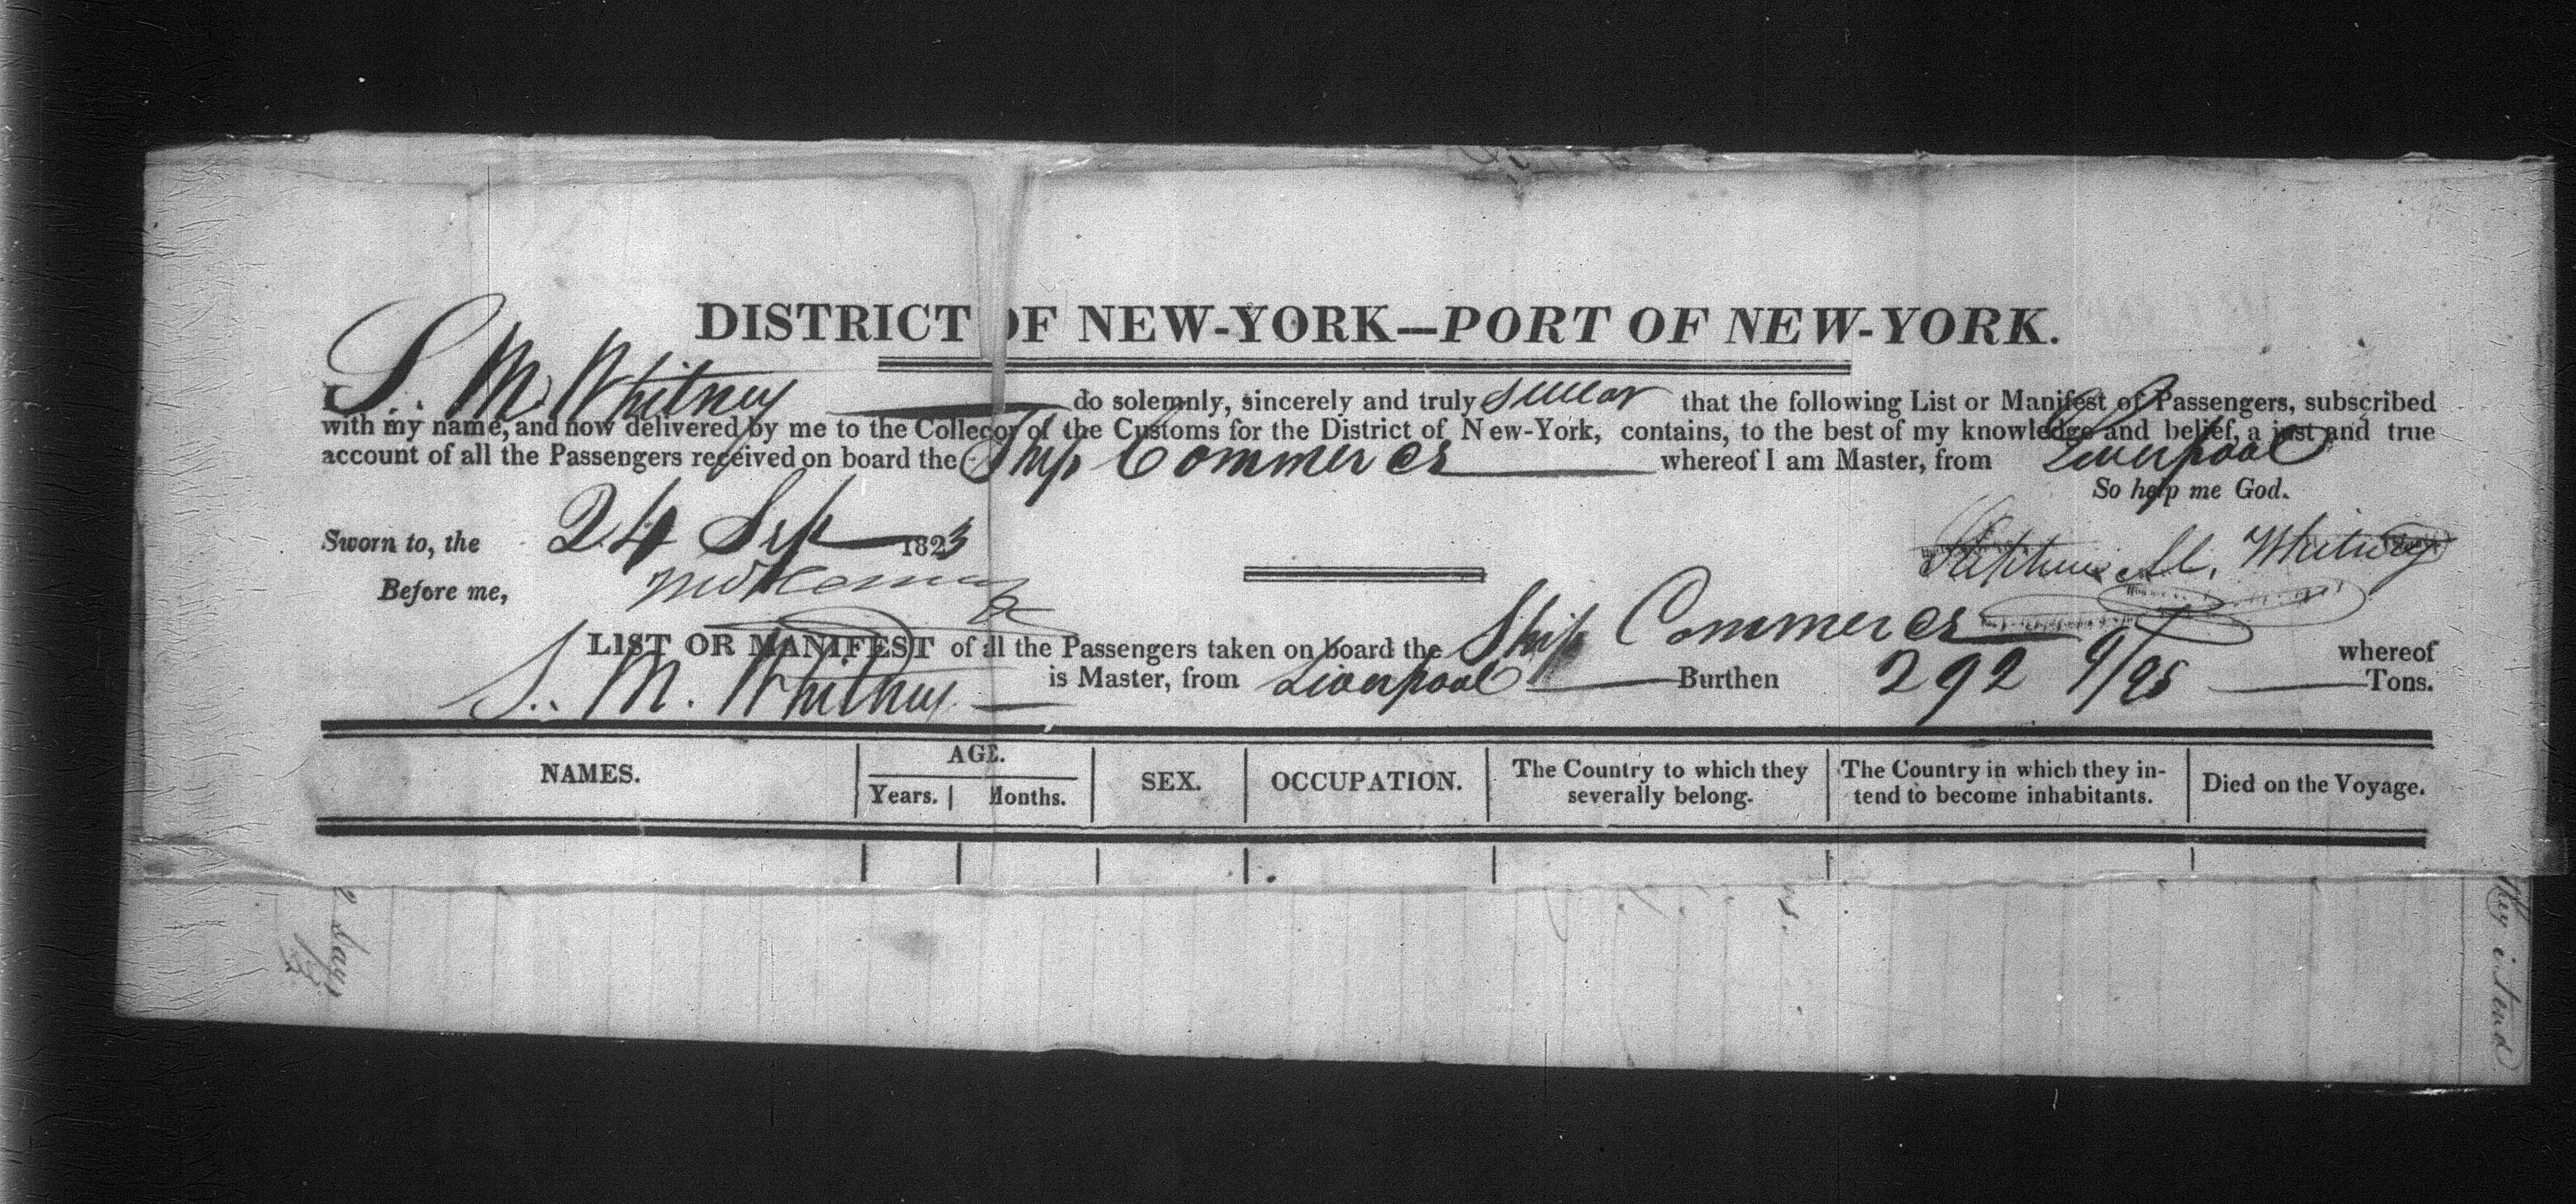 DISTRICT OF NEW-YORK—PORT OF NEW-YORK.
S. M. Whitney do solemnly, sincerely and truly swear that the following List or Manifest of Passengers, subscribed
with my name, and now delivered by me to the Collecor of the Customs for the District of New-York, contains, to the best of my knowledge and belief, a just and true
account of all the Passengers received on board the Ship Commerce whereof I am Master, from Liverpool
So help me God.
Sworn to, the 24 Sep 1823
Before me,
M. Whitney
LIST OR MANIFEST of all the Passengers taken on board the Ship Commerce whereof
S. M. Whitney is Master, from Liverpool Burthen 292 9/95 Tons.
NAMES. AGE. SEX. OCCUPATION. The Country to which they severally belong. The Country in which they in-tend to become inhabitants. Died on the Voyage.
Years. Months.
days
They intend